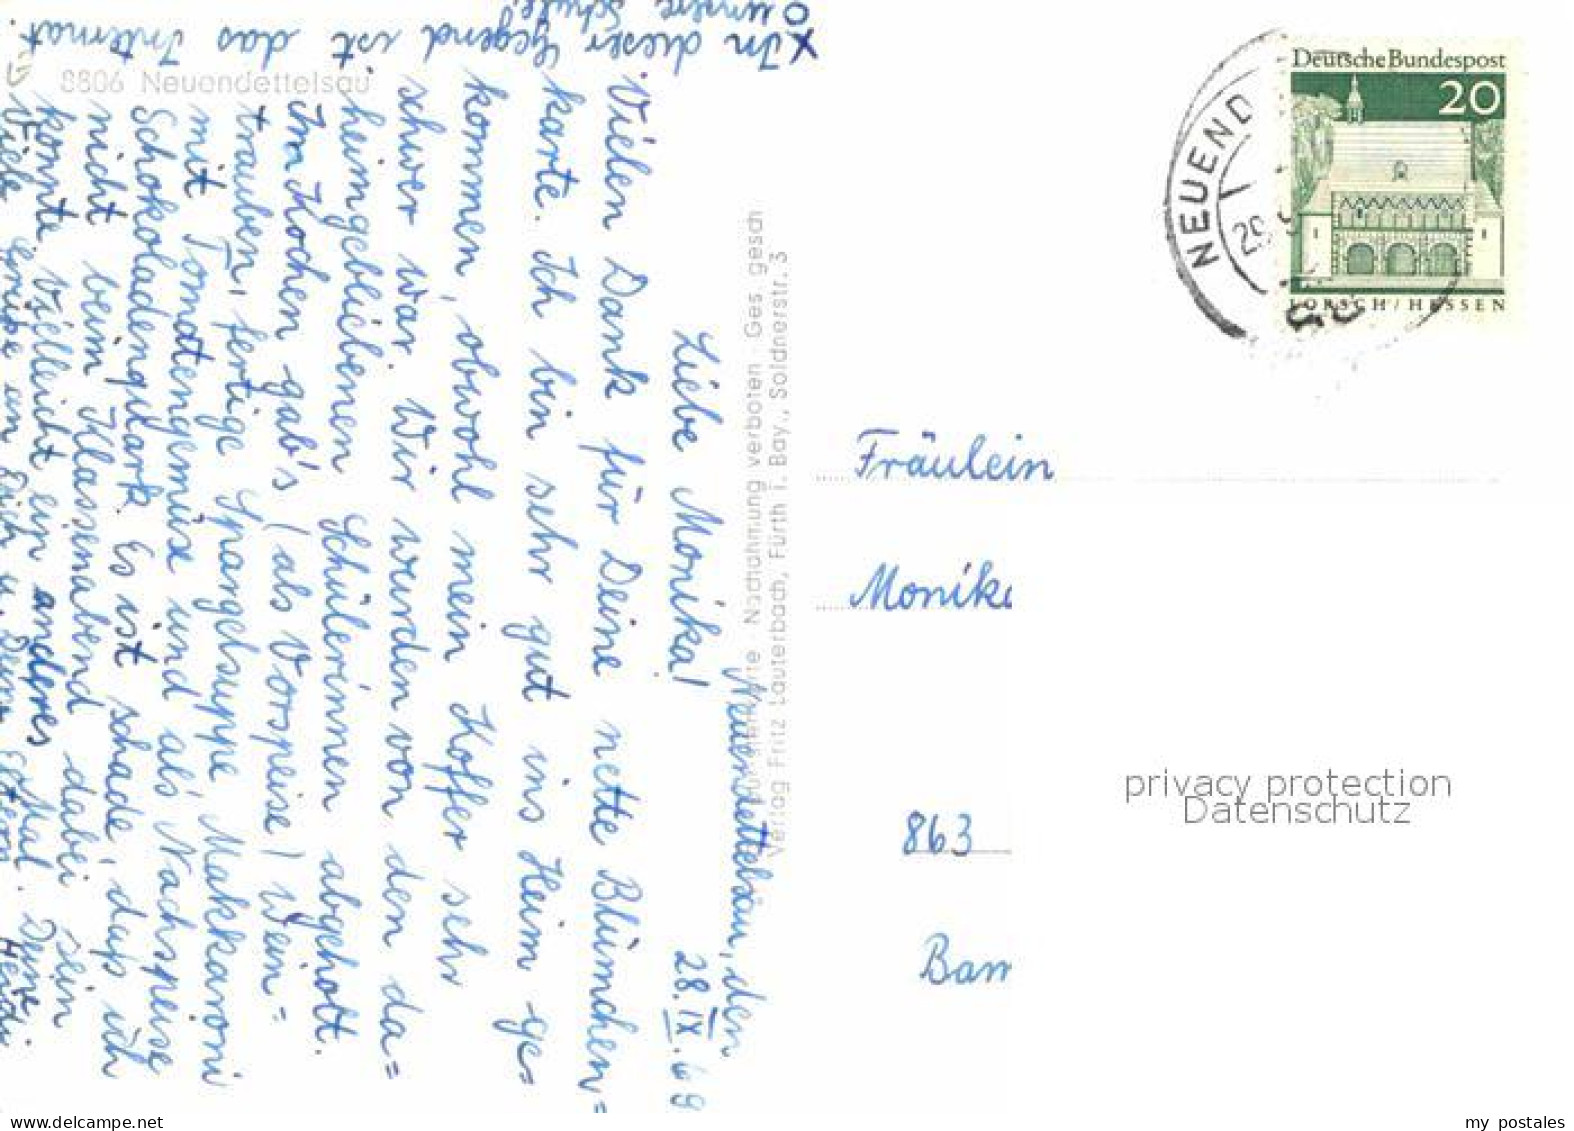 X In dieser Gegend ist das Internat
O unsere Schule!
8806 Neuendettelsau
Neuendettelsau, den
28.IX.69
Liebe Monika!
Vielen Dank für Deine nette Blümchen=
karte. Ich bin sehr gut ins Heim ge=
kommen, obwohl mein Koffer sehr
schwer war. Wir wurden von den da=
heimgebliebenen Schülerinnen abgeholt.
Im Kochen gab's (als Vorspeise) Wein=
trauben, fertige Spargelsuppe, Makkaroni
mit Tomatengemüse und als Nachspeise
Schokoladenquark. Es ist schade, daß ich
nicht beim Klassenabend dabei sein
konnte. Vielleicht ein anderes Mal.
Viele Grüße an Dich u. Deine Eltern. Deine
Nachahmung verboten Ges. gesch
Verlag Fritz Lauterbach, Fürth i. Bay., Soldnerstr. 3
Deutsche Bundespost
20
LORSCH/HESSEN
NEUEND
Fräulein
Monika
863
Bam
privacy protection
Datenschutz
my postales